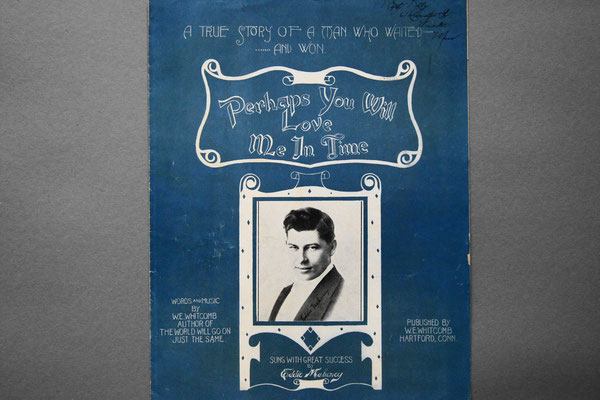 A TRUE STORY OF A MAN WHO WAITED—
....... AND WON.
Perhaps You Will
Love
Me In Time
WORDS AND MUSIC
BY
W.E. WHITCOMB
AUTHOR OF
THE WORLD WILL GO ON
JUST THE SAME.
PUBLISHED BY
W.E. WHITCOMB
HARTFORD, CONN.
SUNG WITH GREAT SUCCESS
BY
Eddie Mahoney